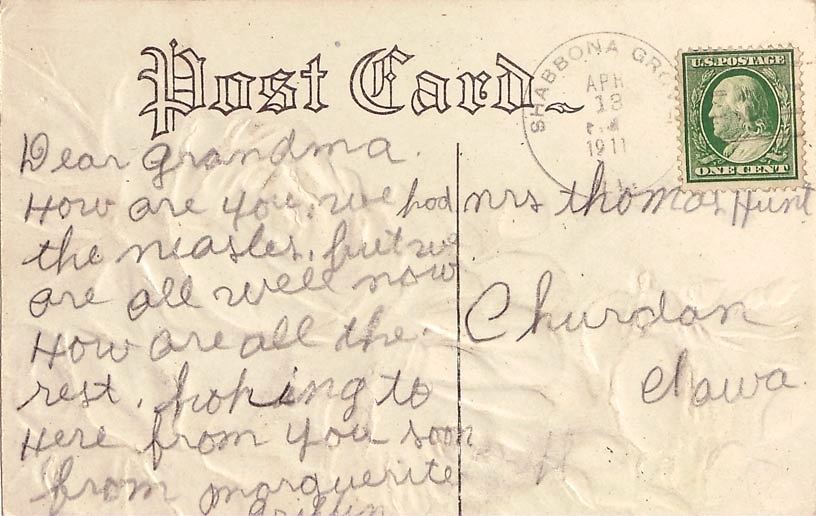 Post Card
SHABBONA GROVE
APR
13
1911
U.S. POSTAGE
ONE CENT
Dear grandma.
How are you, we had
the measles, but we
are all well now
How are all the
rest, hoping to
Here from you soon
from marguerite
Griffin
mrs thomas Hunt
Churdan
Iowa.